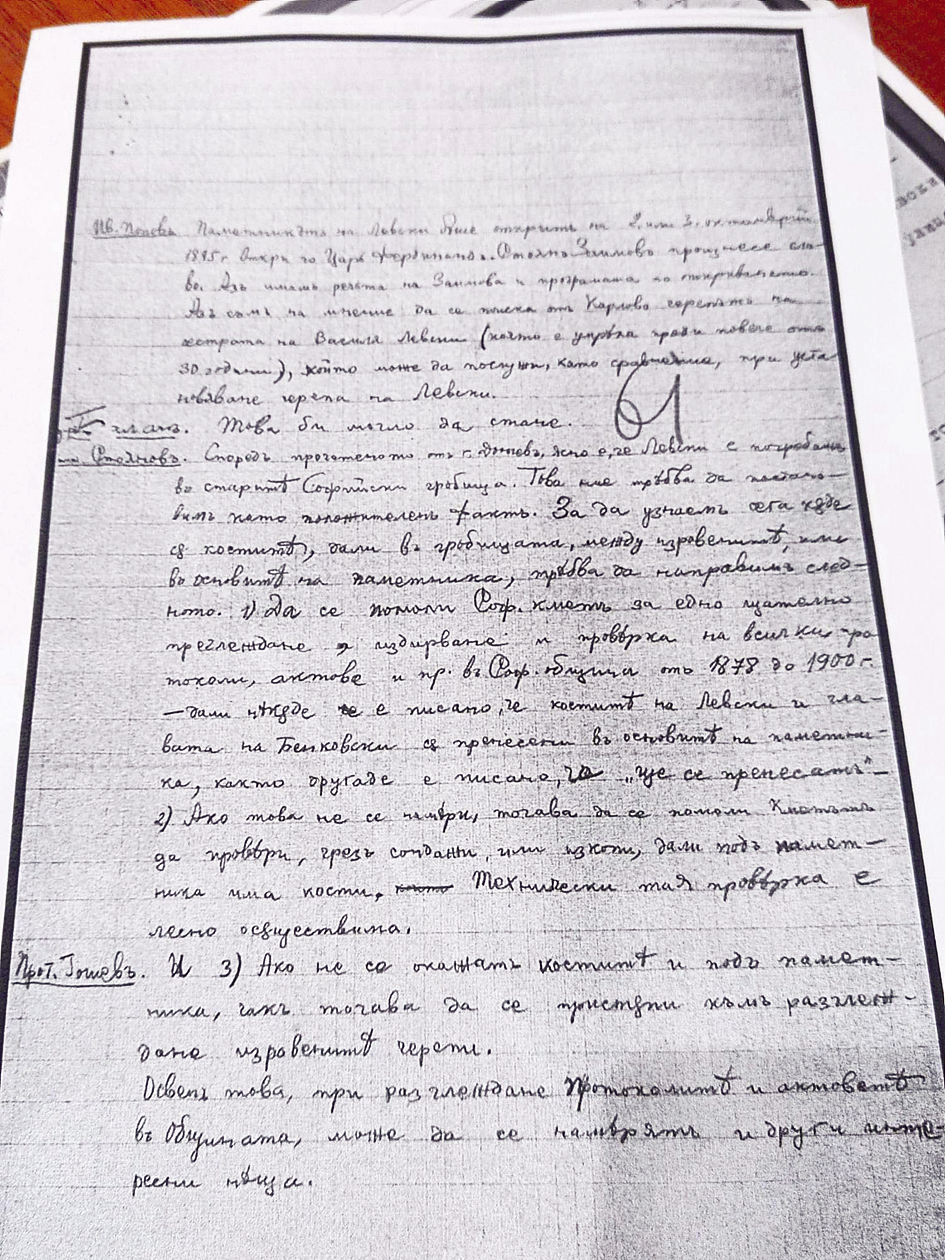 Ив. Попова. Паметникътъ на Левски бѣше откритъ на 2. или 3. октомврий
1895 г. Откри го Царь Фердинандъ. Стоянъ Заимовъ произнесе сло-
во. Азъ имамъ речьта на Заимова и програмата по откриването.
Азъ съмъ на мнение да се поиска отъ Карлово черепътъ на
сестрата на Василя Левски (която е умрѣла преди повече отъ
30 години), който може да послужи, като сравнение, при уста
новяване черепа на Левски.
гласъ. Това би могло да стане.
Стояновъ. Споредъ прочетеното отъ г. ясно е, че Левски е погребанъ
въ старитѣ Софийски гробища. Това ние трѣбва да постано-
вимъ като положителенъ фактъ. За да узнаемъ сега кѫде
сѫ коститѣ, дали въ гробищата, между изровенитѣ, или
въ основитѣ на паметника, трѣбва да направимъ след-
ното. 1) Да се помоли Соф. кметъ за едно щателно
преглеждане и издирване и провѣрка на всички про
токоли, актове и пр. въ Соф. община отъ 1878 до 1900 г.
— дали нѣкѫде е писано, че коститѣ на Левски и гла-
вата на Бенковски сѫ пренесени въ основитѣ на паметни-
ка, както другаде е писано, че „ще се пренесатъ“ —
2) Ако това не се намѣри, тогава да се помоли Кметътъ
да провѣри, чрезъ сондажи, или изкопи, дали подъ памет-
ника има кости. Технически тая провѣрка е
лесно осѫществима.
Прот. Гошевъ. И 3) Ако не се окажатъ коститѣ и подъ памет-
ника, чакъ тогава да се пристѫпи къмъ разглеж-
дане изровенитѣ черепи.
Освенъ това, при разглеждане протоколитѣ и актоветѣ
въ Общината, може да се намѣрятъ и други инте-
ресни нѣща.